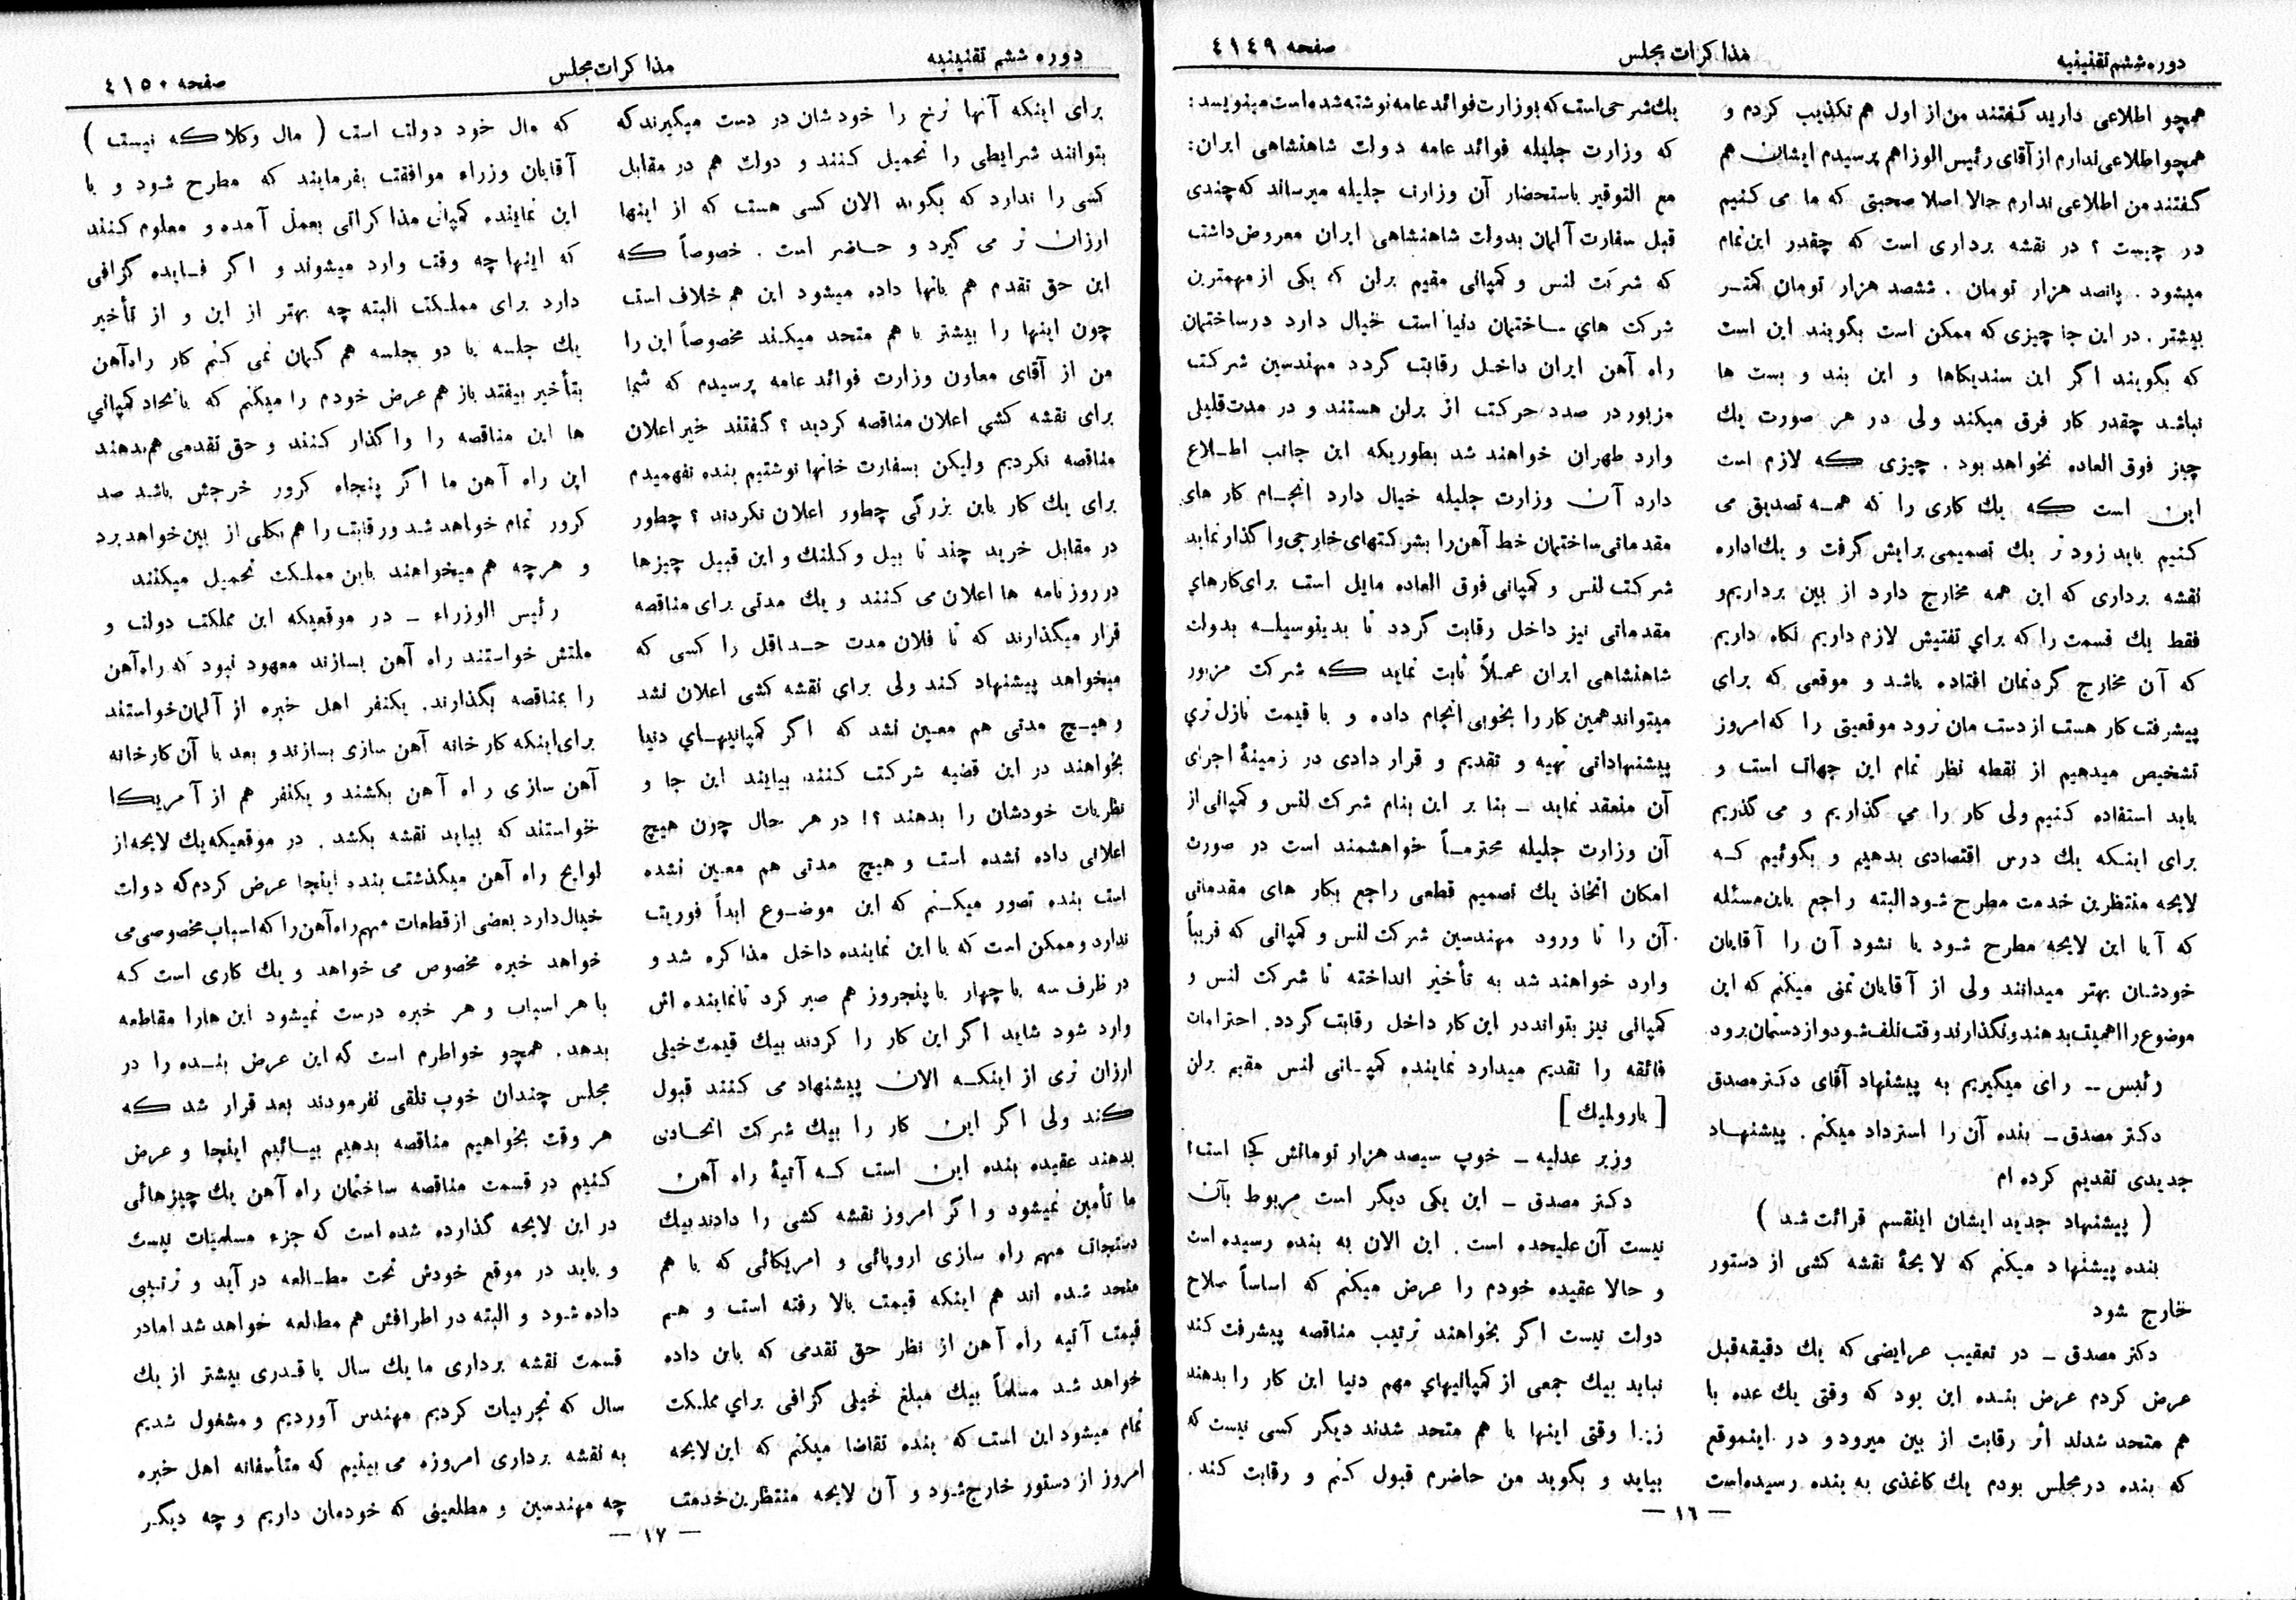 دوره ششم تقنینیه
مذاکرات مجلس
صفحه ٤١٤٩
همچو اطلاعی دارید گفتند من از اول هم تکذیب کردم و
همچو اطلاعی ندارم از آقای رئیس الوزراهم پرسیدم ایشان هم
گفتند من اطلاعی ندارم حالا اصلا صحبتی که ما می کنیم
در چیست ؟ در نقشه برداری است که چقدر این تمام
میشود . پانصد هزار تومان . ششصد هزار تومان کمتر
بیشتر . در این جا چیزی که ممکن است بگویند این است
که بگویند اگر این سندیکاها و این بند و بست ها
نباشد چقدر کار فرق میکند ولی در هر صورت یك
چیز فوق العاده نخواهد بود . چیزی که لازم است
این است که یك کاری را که همه تصدیق می
کنیم باید زود تر یك تصمیمی برایش گرفت و یك اداره
نقشه برداری که این همه مخارج دارد از بین برداریم و
فقط یك قسمت را که برای تفتیش لازم داریم نگاه داریم
که آن مخارج گردنمان افتاده باشد و موقعی که برای
پیشرفت کار هست از دست مان نرود موقعیتی را که امروز
تشخیص میدهیم از نقطه نظر تمام این جهات است و
باید استفاده کنیم ولی کار را می گذاریم و می گذریم
برای اینکه یك درس اقتصادی بدهیم و بگوئیم که
لایحه منتظرین خدمت مطرح شود البته راجع باین مسئله
که آیا این لایحه مطرح شود یا نشود آن را آقایان
خودشان بهتر میدانند ولی از آقایان تمنی میکنم که این
موضوع را اهمیت بدهند و نگذارند وقت تلف شود و از دستمان برود
رئیس ــ رای میگیریم به پیشنهاد آقای دکتر مصدق
دکتر مصدق ــ بنده آن را استرداد میکنم . پیشنهاد
جدیدی تقدیم کرده ام
( پیشنهاد جدید ایشان اینقسم قرائت شد )
بنده پیشنهاد میکنم که لایحهٔ نقشه کشی از دستور
خارج شود
دکتر مصدق ــ در تعقیب عرایضی که یك دقیقه قبل
عرض کردم عرض بنده این بود که وقتی یك عده با
هم متحد شدند اثر رقابت از بین میرود و در اینموقع
که بنده در مجلس بودم یك کاغذی به بنده رسیده است
یك شرحی است که بوزارت فوائد عامه نوشته شده است مینویسد :
که وزارت جلیله فوائد عامه دولت شاهنشاهی ایران :
مع التوقیر باستحضار آن وزارت جلیله میرساند که چندی
قبل سفارت آلمان بدولت شاهنشاهی ایران معروض داشت
که شرکت لنس و کمپانی مقیم برلن که یکی از مهمترین
شرکت های ساختمان دنیا است خیال دارد در ساختمان
راه آهن ایران داخل رقابت گردد مهندسین شرکت
مزبور در صدد حرکت از برلن هستند و در مدت قلیل
وارد طهران خواهند شد بطوریکه این جانب اطلاع
دارد آن وزارت جلیله خیال دارد انجام کار های
مقدماتی ساختمان خط آهن را بشرکتهای خارجی واگذار نماید
شرکت لنس و کمپانی فوق العاده مایل است برای کارهای
مقدماتی نیز داخل رقابت گردد تا بدینوسیله بدولت
شاهنشاهی ایران عملاً ثابت نماید که شرکت مزبور
میتواند همین کار را بخوبی انجام داده و با قیمت نازل تری
پیشنهاداتی تهیه و تقدیم و قرار دادی در زمینهٔ اجرای
آن منعقد نماید ــ بنا بر این بنام شرکت لنس و کمپانی از
آن وزارت جلیله محترماً خواهشمند است در صورت
امکان اتخاذ یك تصمیم قطعی راجع بکار های مقدماتی
آن را تا ورود مهندسین شرکت لنس و کمپانی که قریباً
وارد خواهند شد به تأخیر انداخته تا شرکت لنس و
کمپانی نیز بتواند در این کار داخل رقابت گردد . احترامات
فائقه را تقدیم میدارد نماینده کمپانی لنس مقیم برلن
[ بارولیك ]
وزیر عدلیه ــ خوب سیصد هزار تومانش کجا است ؟
دکتر مصدق ــ این یکی دیگر است مربوط بآن
نیست آن علیحده است . این الان به بنده رسیده است
و حالا عقیده خودم را عرض میکنم که اساساً صلاح
دولت نیست اگر بخواهند ترتیب مناقصه پیشرفت کند
نباید بیك جمعی از کمپانیهای مهم دنیا این کار را بدهند
زیرا وقتی اینها با هم متحد شدند دیگر کسی نیست که
بیاید و بگوید من حاضرم قبول کنم و رقابت کند .
— ١٦ —
دوره ششم تقنینیه
مذاکرات مجلس
صفحه ٤١٥٠
برای اینکه آنها نرخ را خودشان در دست میگیرند که
بتوانند شرایطی را تحمیل کنند و دولت هم در مقابل
کسی را ندارد که بگوید الان کسی هست که از اینها
ارزان تر می گیرد و حاضر است . خصوصاً که
این حق تقدم هم بانها داده میشود این هم خلاف است
چون اینها را بیشتر با هم متحد میکند مخصوصاً این را
من از آقای معاون وزارت فوائد عامه پرسیدم که شما
برای نقشه کشی اعلان مناقصه کردید ؟ گفتند خیر اعلان
مناقصه نکردیم ولیکن بسفارت خانها نوشتیم بنده نفهمیدم
برای یك کار باین بزرگی چطور اعلان نکردند ؟ چطور
در مقابل خرید چند تا بیل و کلنك و این قبیل چیزها
در روزنامه ها اعلان می کنند و یك مدتی برای مناقصه
قرار میگذارند که تا فلان مدت حداقل را کسی که
میخواهد پیشنهاد کند ولی برای نقشه کشی اعلان نشد
و هیچ مدتی هم معین نشد که اگر کمپانیهای دنیا
بخواهند در این قضیه شرکت کنند بیایند این جا و
نظریات خودشان را بدهند ؟! در هر حال چون هیچ
اعلانی داده نشده است و هیچ مدتی هم معین نشده
است بنده تصور میکنم که این موضوع ابداً فوریت
ندارد و ممکن است که با این نماینده داخل مذاکره شد و
در ظرف سه یا چهار یا پنجروز هم صبر کرد تا نماینده اش
وارد شود شاید اگر این کار را کردند بیك قیمت خیلی
ارزان تری از اینکه الان پیشنهاد می کنند قبول
کند ولی اگر این کار را بیك شرکت اتحادی
بدهند عقیده بنده این است که آتیهٔ راه آهن
ما تأمین نمیشود و اگر امروز نقشه کشی را دادند بیك
دستجات مهم راه سازی اروپائی و امریکائی که با هم
متحد شده اند هم اینکه قیمت بالا رفته است و هم
قیمت آتیه راه آهن از نظر حق تقدمی که باین داده
خواهد شد مسلماً بیك مبلغ خیلی گزافی برای مملکت
تمام میشود این است که بنده تقاضا میکنم که این لایحه
امروز از دستور خارج شود و آن لایحه منتظرین خدمت
که مال خود دولت است ( مال وکلا که نیست )
آقایان وزراء موافقت بفرمایند که مطرح شود و با
این نماینده کمپانی مذاکراتی بعمل آمده و معلوم کنند
که اینها چه وقت وارد میشوند و اگر فایده گزافی
دارد برای مملکت البته چه بهتر از این و از تأخیر
یك جلسه یا دو جلسه هم گمان نمی کنم کار راه آهن
بتأخیر بیفتد باز هم عرض خودم را میکنم که باتحاد کمپانی
ها این مناقصه را واگذار کنند و حق تقدمی هم بدهند
این راه آهن ما اگر پنجاه کرور خرجش باشد صد
کرور تمام خواهد شد و رقابت را هم بکلی از بین خواهد برد
و هرچه هم میخواهند باین مملکت تحمیل میکنند
رئیس الوزراء ــ در موقعیکه این مملکت دولت و
ملتش خواستند راه آهن بسازند معهود نبود که راه آهن
را بمناقصه بگذارند . یکنفر اهل خبره از آلمان خواستند
برای اینکه کارخانه آهن سازی بسازند و بعد با آن کارخانه
آهن سازی راه آهن بکشند و یکنفر هم از آمریکا
خواستند که بیاید نقشه بکشد . در موقعیکه یك لایحه از
لوایح راه آهن میگذشت بنده اینجا عرض کردم که دولت
خیال دارد بعضی از قطعات مهم راه آهن را که اسباب مخصوصی می
خواهد خبره مخصوص می خواهد و یك کاری است که
با هر اسباب و هر خبره درست نمیشود این هارا مقاطعه
بدهد . همچو خواطرم است که این عرض بنده را در
مجلس چندان خوب تلقی نفرمودند بعد قرار شد که
هر وقت بخواهیم مناقصه بدهیم بیائیم اینجا و عرض
کنیم در قسمت مناقصه ساختمان راه آهن یك چیزهائی
در این لایحه گذارده شده است که جزء مسلمیات نیست
و باید در موقع خودش تحت مطالعه در آید و ترتیبی
داده شود و البته در اطرافش هم مطالعه خواهد شد اما در
قسمت نقشه برداری ما یك سال یا قدری بیشتر از یك
سال که تجربیات کردیم مهندس آوردیم و مشغول شدیم
به نقشه برداری امروزه می بینیم که متأسفانه اهل خبره
چه مهندسین و مطلعینی که خودمان داریم و چه دیگر
— ١٧ —